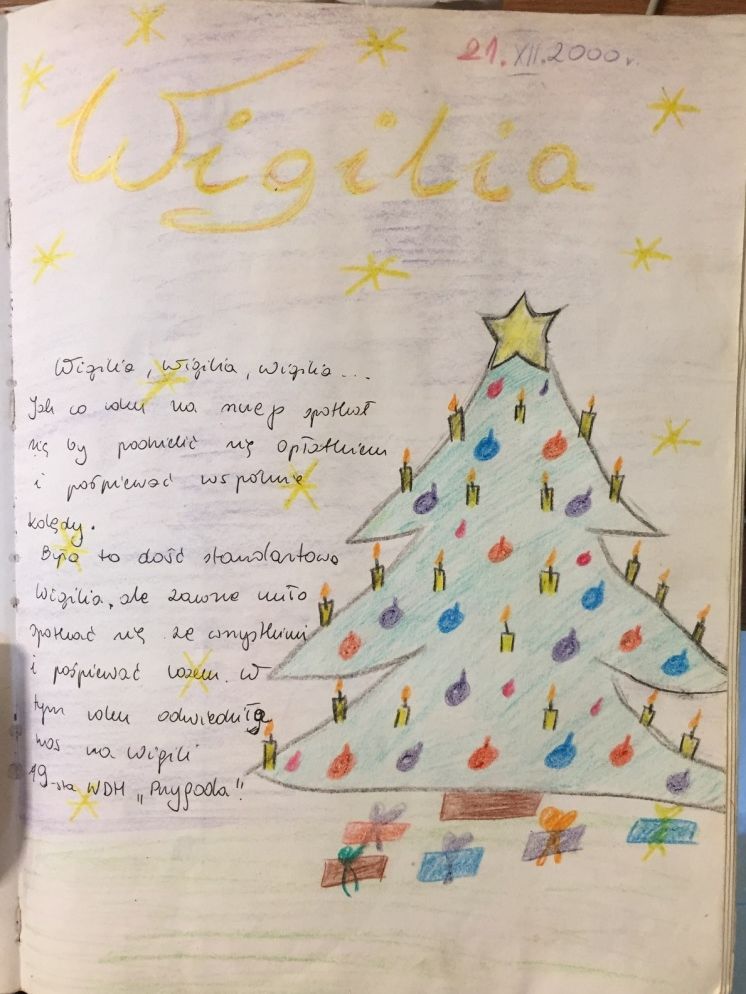 21.XII.2000r.
Wigilia
Wigilia, wigilia, wigilia...
Jak co roku na niej spotkał
się by podzielić się opłatkiem
i pośpiewać wspólnie
kolędy.
Była to dość standartowa
Wigilia, ale zawsze miło
spotkać się ze wszystkimi
i pośpiewać razem. W
tym roku odwiedziła
nas na Wigili
19-sta WDH „Przygoda".